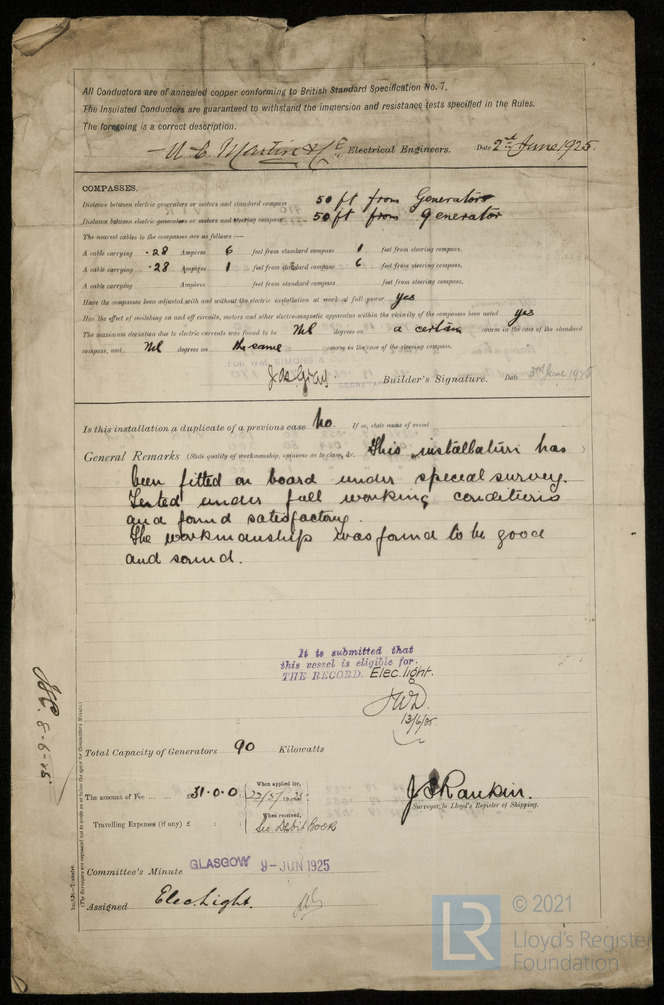 All Conductors are of annealed copper conforming to British Standard Specification No. 7.
The Insulated Conductors are guaranteed to withstand the immersion and resistance tests specified in the Rules.
The foregoing is a correct description.
W. C. Martin & Co. Electrical Engineers. Date 2nd June 1925.
COMPASSES.
Distance between electric generators or motors and standard compass 50 ft from Generators
Distance between electric generators or motors and steering compass 50 ft from generator
The nearest cables to the compasses are as follows:—
A cable carrying .28 Amperes 6 feet from standard compass 1 feet from steering compass.
A cable carrying .28 Amperes 1 feet from standard compass 6 feet from steering compass.
A cable carrying Amperes feet from standard compass feet from steering compass.
Have the compasses been adjusted with and without the electric installation at work at full power yes
Has the effect of switching on and off circuits, motors and other electro-magnetic apparatus within the vicinity of the compasses been noted yes
The maximum deviation due to electric currents was found to be Nil degrees on a certain course in the case of the standard
compass, and Nil degrees on the same course in the case of the steering compass.
Builder's Signature. Date 3rd June 1925
Is this installation a duplicate of a previous case No. If so, state name of vessel
General Remarks (State quality of workmanship, opinions as to class, &c. This installation has
been fitted on board under special survey.
Tested under full working conditions
and found satisfactory.
The workmanship was found to be good
and sound.
It is submitted that
this vessel is eligible for
THE RECORD. Elec. light.
13/6/25.
Total Capacity of Generators 90 Kilowatts
The amount of Fee ... ... £ 31.0.0 When applied for, 22/5/1925
J S Rankin.
Surveyor to Lloyd's Register of Shipping.
Travelling Expenses (if any) £ : : When received, See Debit Book
Committee's Minute GLASGOW 9-JUN 1925
Assigned Elec. Light.
8-6-25.
(The Surveyors are requested not to write on or below the space for Committee's Minute.)
LR
© 2021
Lloyd's Register
Foundation